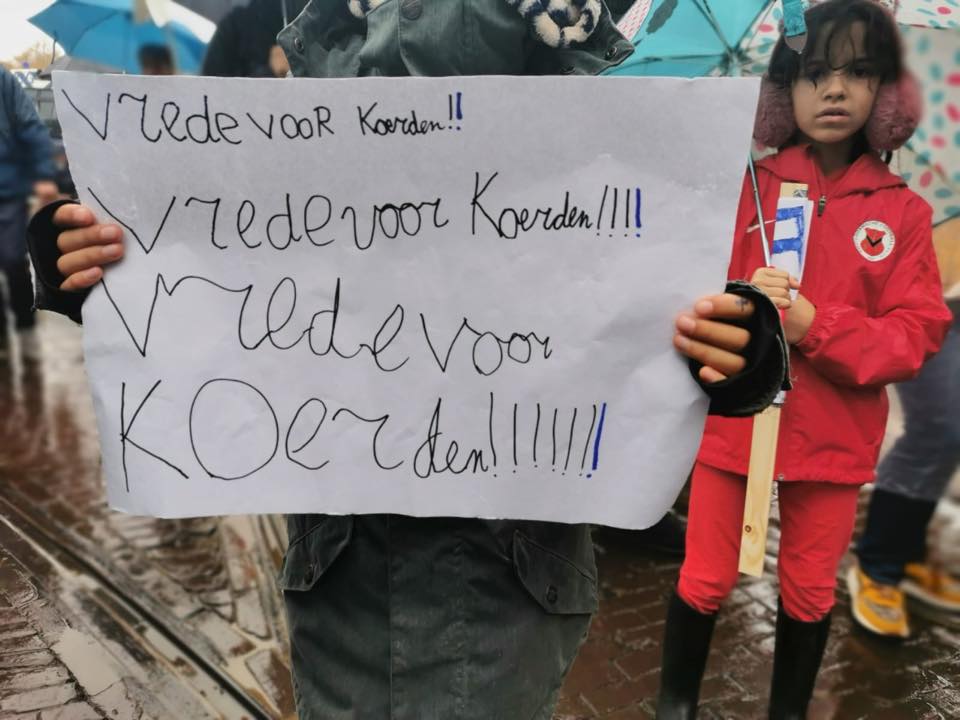 Vrede vooR Koerden!!
Vrede voor Koerden!!!!
Vrede voor
KOerden!!!!!!!